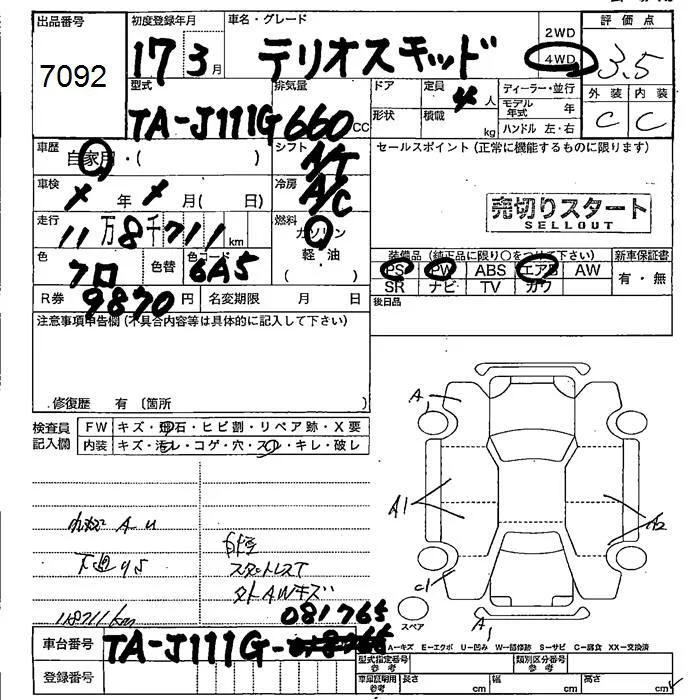 出品番号 初度登録年月 車名・グレード 2WD 評価点
7092 17 3月 テリオスキッド 4WD 3.5
型式 排気量 ドア 定員 人 ディーラー・並行 外装 内装
TA-J111G 660cc 形状 積載 kg モデル年式 年 C C
ハンドル 左・右
車歴 自家用・( ) シフト A/T セールスポイント (正常に機能するものに限ります)
車検 年 月( 日) 冷房 A/C
売切りスタート
SELLOUT
走行 11万8千711km 燃料 ガソリン
軽・油
( )
色 クロ 色替 色コード 6A5
装備品(純正品に限り○をつけて下さい) 新車保証書
PS PW ABS エアB AW 有・無
SR ナビ TV カワ
R券 9870円 名変期限 月 日 後日品
注意事項申告欄(不具合内容等は具体的に記入して下さい)
修復歴 有 〔箇所 〕
検査員 FW キズ・飛石・ヒビ割・リペア跡・X要
記入欄 内装 キズ・汚レ・コゲ・穴・スレ・キレ・破レ
A1
A1
A2
C1
A1
スペア
下廻りS
スタットレスT
タトAWキズ
118711km
081765
車台番号 TA-J111G-
登録番号
A=キズ E=エクボ U=凹み W=補修跡 S=サビ C=腐食 XX=交換済
型式指定番号 参考 類別区分番号 参考
車庫証明用 参考 長さ cm 幅 cm 高さ cm